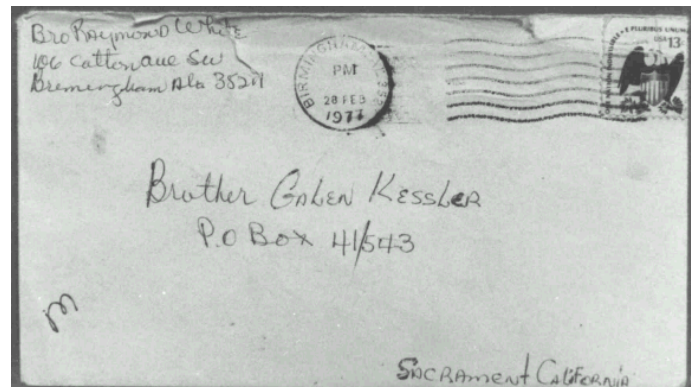 Bro Raymond White
106 Cotton ave SW
Bremingham Ala 35211
BIRMINGHAM
PM
28 FEB
1977
E PLURIBUS UNUM
USA 13c
Brother GALEN KESSLER
P.O Box 41543
m
SACRAMENT CALIFORNIA